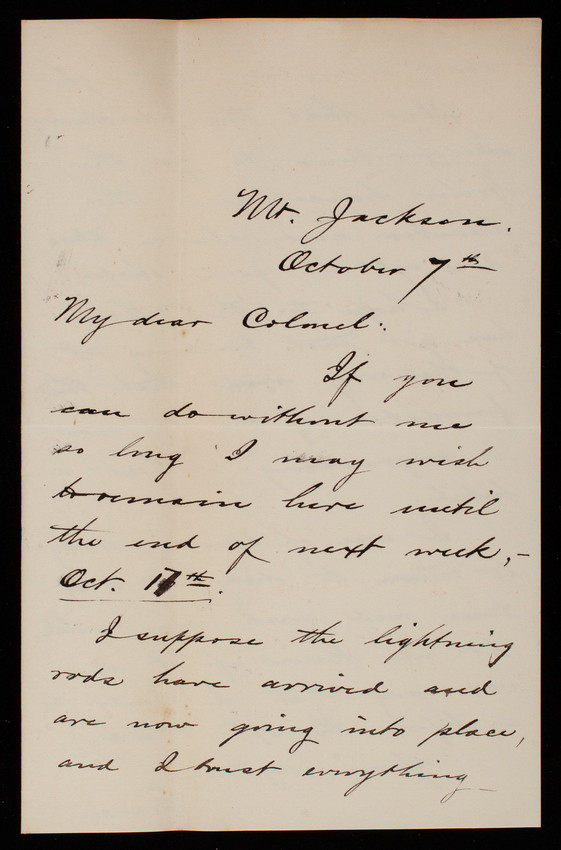 Mt. Jackson.
October 7th
My dear Colonel:
If you
can do without me
so long I may wish
to remain here until
the end of next week,-
Oct. 17th.
I suppose the lightning
rods have arrived and
are now going into place,
and I trust everything